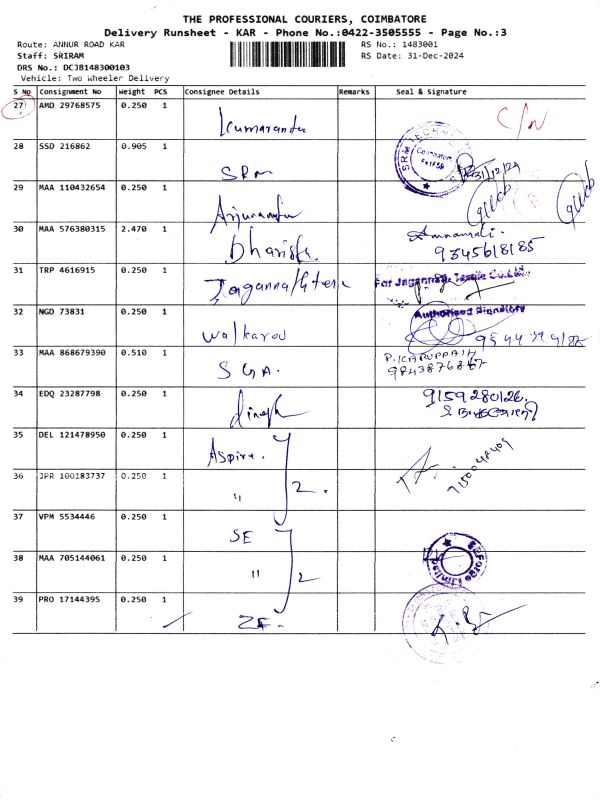 THE PROFESSIONAL COURIERS, COIMBATORE
Delivery Runsheet - KAR - Phone No.:0422-3505555 - Page No.:3
Route: ANNUR ROAD KAR RS No.: 1483001
Staff: SRIRAM RS Date: 31-Dec-2024
DRS No.: DCJB148300103
Vehicle: Two Wheeler Delivery
S No Consignment No Weight PCS Consignee Details Remarks Seal & Signature
27 AMD 29768575 0.250 1 C/N
28 SSD 216862 0.905 1 SRM 31/12/24
29 MAA 110432654 0.250 1
30 MAA 576380315 2.470 1 Dharish
31 TRP 4616915 0.250 1 For Jagannath Textile Co. Ltd.,
32 NGD 73831 0.250 1 Authorised Signatory
33 MAA 868679390 0.510 1 S G A. P. KARUPPAIH
34 EDQ 23287798 0.250 1 dinesh 9159280126.
35 DEL 121478950 0.250 1 Aspire.
36 JPR 100183737 0.250 1 " 2. 7150048409
37 VPM 5534446 0.250 1 SE
38 MAA 705144061 0.250 1 " 2
39 PRO 17144395 0.250 1 ZF.